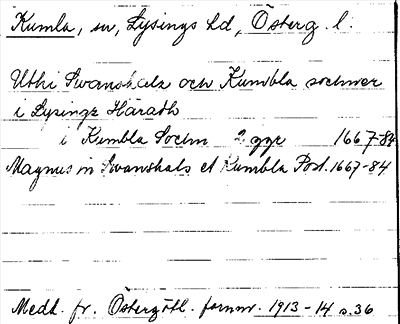 Kumla, sn, Lysings hd, Österg. l.
Uthi Swanshals och Kumbla sochner
i Lysings Häradh
i Kumbla Sochn 2 ggr 1667-84
Magnus in Swanshals et Kumbla Past. 1667-84
Medd. fr. Östergötl. fornm. 1913-14 s. 36